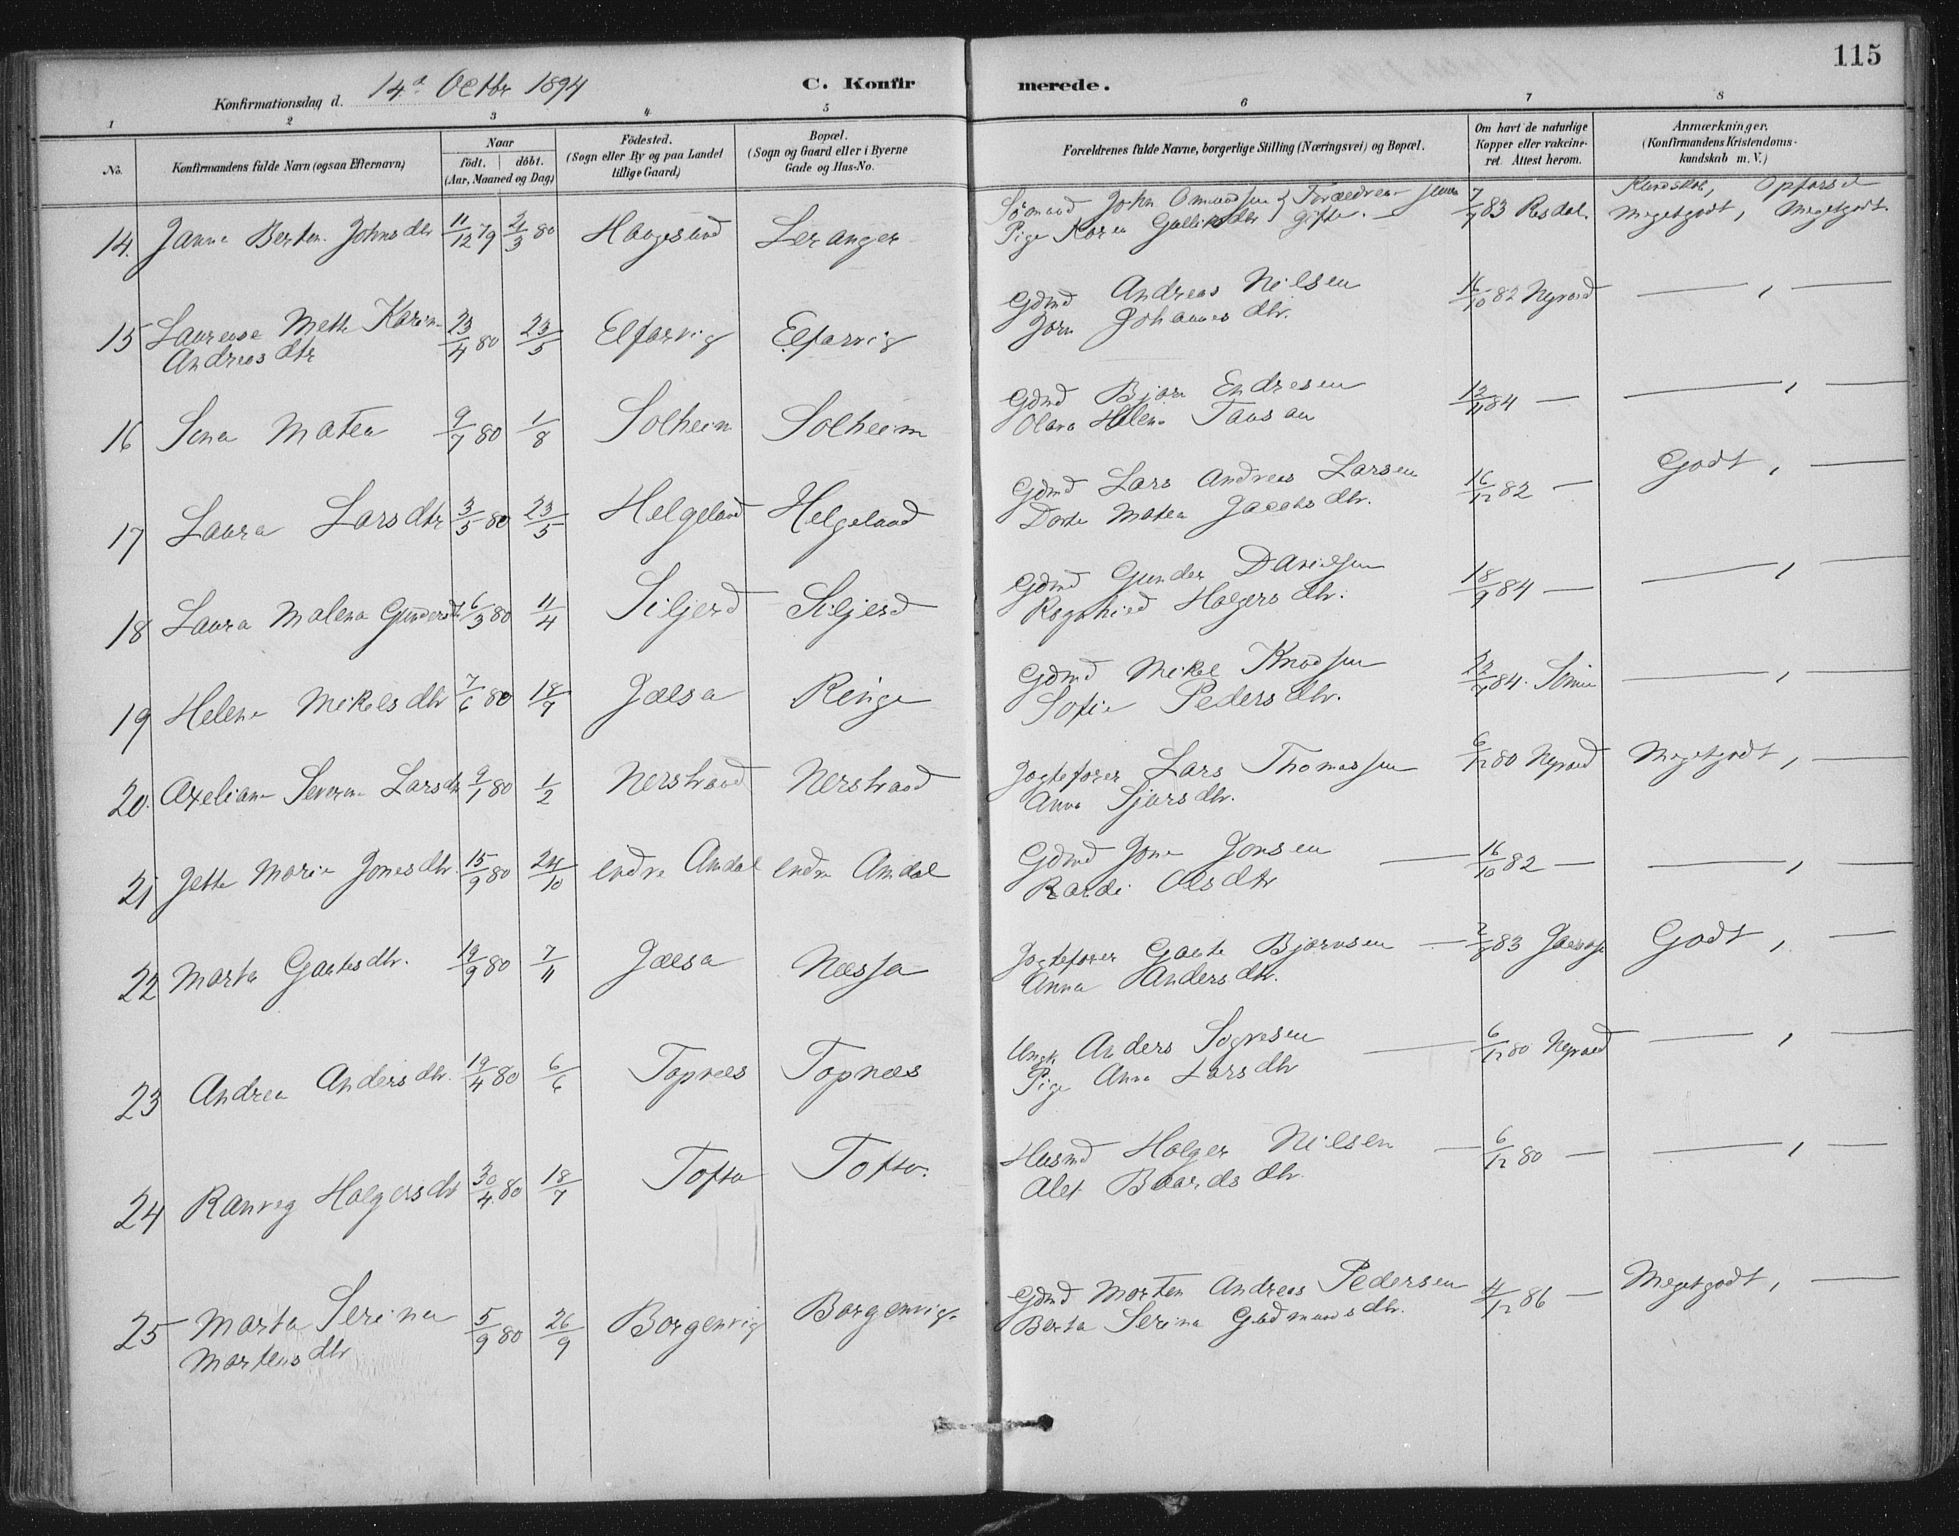 115
Konfirmationsdag d. 14d Octbr 1894 C. Konfirmerede.
1 2 3 4 5 6 7 8
No. Konfirmandens fulde Navn (ogsaa Efternavn) Naar født. døbt. (Aar, Maaned og Dag) Fødested. (Sogn eller By og paa Landet tillige Gaard) Bopæl. (Sogn og Gaard eller i Byerne Gade og Hus-No. Forældrenes fulde Navne, borgerlige Stilling (Næringsvei) og Bopæl. Om havt de naturlige Kopper eller vakcineret. Attest herom. Anmærkninger. (Konfirmandens Kristendomskundskab m. V.)
Sømand John Omundsen } Forældrene Kundskab, Opførsel
14. Janna Johnsdtr 11/12 79 2/3 80 Haugesund Leranger Pige Karen gifte. 7/7 83 Megetgodt, Megetgodt
Gdmd Andreas Nilsen 16/10 82 — , —
15 Laurense Mette Karine 23/4 80 23/5 Elfarvig Elfarvig Johannesdtr.
Andreasdtr
Gdmd Bjørn Endresen 12/11 84 — — , —
16 Sena Matea 9/7 80 1/8 Solheim Solheim Olava Helene
Gdmd Lars Andreas Larsen 16/12 82 — Godt , —
17 Laura Larsdtr 3/5 80 23/5 Helgeland Helgeland Dorte Matea Jacobsdtr.
Gdmd Gunder Davidsen 18/9 84 — — , —
18 Laura Malena Gundersdtr 6/3 80 11/4 Siljerd Siljerd Holgersdtr.
Gdmd Mikel Knudsen 84. — , —
19 Helene Mikelsdtr 7/6 80 18/7 Jælsa Ringe Sofie Pedersdtr.
Jagtefører Lars Thomassen 6/12 80 Megetgodt , —
20. Axeliane Severine Larsdtr 9/1 80 1/2 Nerstrand Nerstrand Anna Sjursdtr.
Gdmd Jone Jonsen — 16/10 82 — — , —
21 Jette Marie Jonesdtr. 15/9 80 24/10 Indre Amdal Indre Amdal Olsdtr
Jagtefører Gaute Bjørnsen — 2/8 83 Godt , —
22 Marta Gautesdtr. 19/9 80 7/11 Jælsa Næssa Anna Andersdtr.
Ungk Anders — 6/12 80 — , —
23 Andrea Andersdtr. 19/4 80 6/6 Topnæs Topnæs Pige Anna Larsdtr
Husmd Holger Nilsen — 6/12 80 — — , —
24 Ranveg Holgersdtr 30/4 80 18/7 Tofta Tofta. Alet Baardsdtr.
Gdmd Morten Andreas Pedersen 4/12 86 — Megetgodt , —
25 Marta Serina 5/9 80 26/9 Borgenvig Borgenvig. Berta Serina Gudmundsdtr.
Mortensdtr